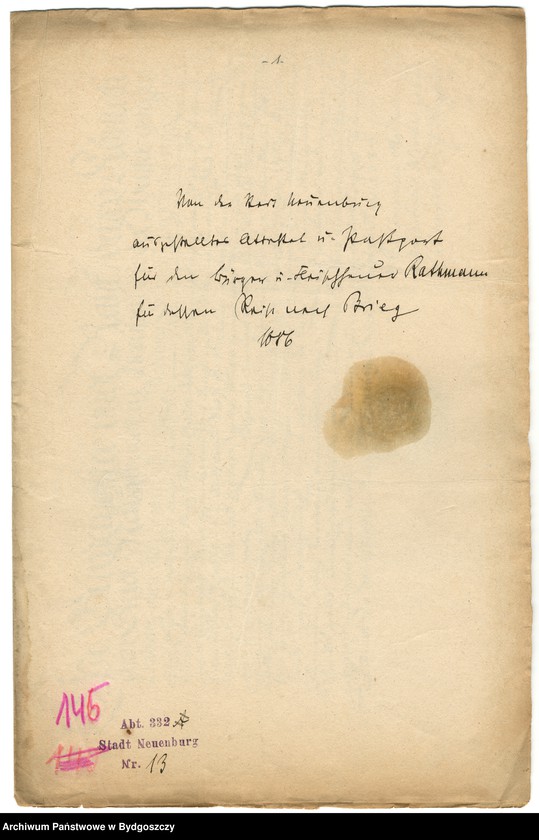 - 1.
Von der Stadt Neuenburg
ausgestelltes Attestat u. Passport
für den Bürger u. Fleischhauer Rathmann
für dessen Reise nach Brieg
145
Abt. 332
Stadt Neuenburg
Nr. 13
Archiwum Państwowe w Bydgoszczy